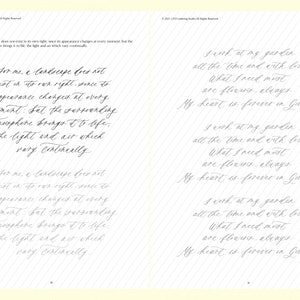 All Rights Reserved
does not exist in its own right, since its appearance changes at every moment; but the
brings it to life, the light and air which vary continually.
For me a landscape does not
exist in its own right, since its
appearance changes at every
moment; but the surrounding
atmosphere brings it to life;
the light and air which
vary continually.
For me a landscape does not
exist in its own right, since its
appearance changes at every
moment; but the surrounding
atmosphere brings it to life;
the light and air which
vary continually.
All Rights Reserved
I work at my garden
all the time and with love.
What I need most
are flowers, always.
My heart is forever in Gi
I work at my garden
all the time and with love.
What I need most
are flowers, always.
My heart is forever in Gi
I work at my garden
all the time and with love.
What I need most
are flowers, always.
My heart is forever in Gi